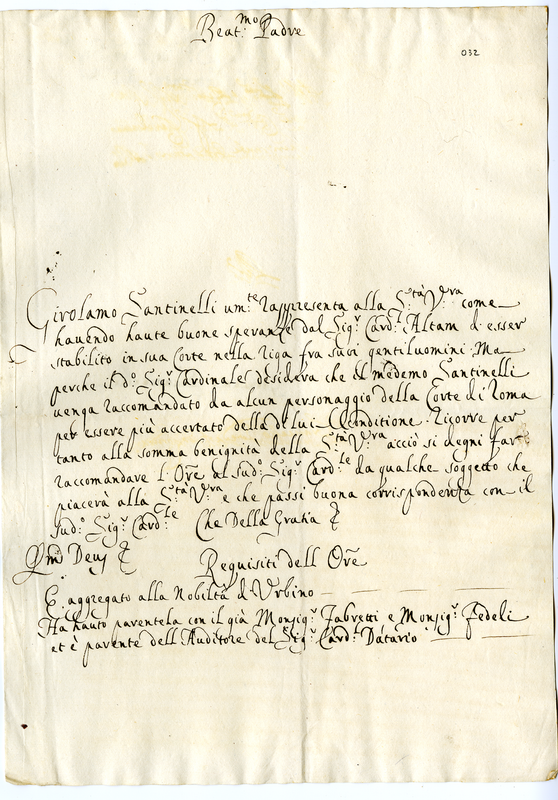 Beat.mo Padre
032
Girolamo Santinelli um.te rappresenta alla S.tà V.ra come
havendo haute buone speranze dal Sig.r Card.l Altam d'esser
stabilito in sua Corte nella riga fra suoi gentiluomini. Ma
perche il d.o Sig.r Cardinales desidera che el medemo Santinelli
venga raccomandato da alcun personaggio della Corte di Roma
per essere più accertato della di lui Conditione. Ricorre per
tanto alla somma benignità della S.tà V.ra acciò si degni far
raccomandare l'Ore al sud.o Sig.r Card.le da qualche soggetto che
piacerà alla S.tà V.ra e che passi buona corrispondenza con il
sud.o Sig.r Card.le Che Della Gratia
Deus Requisiti dell Ore
E aggregato alla Nobiltà d'Urbino
Ha hauto parentela con il già Monsig.r Fabretti e Monsig.r Fedeli
et è parente dell'Auditore del Sig.r Card.l Datario